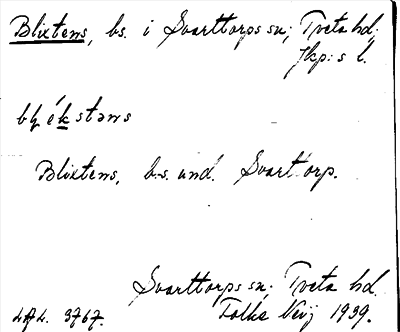 Blixtens, bs. i Svarttorps sn; Tveta hd;
Jkp:s l.
blékstəns
Blixtens, bs. und. Svarttorp.
Svarttorps sn; Tveta hd.
LAL. 3767. Folke Neij 1939.